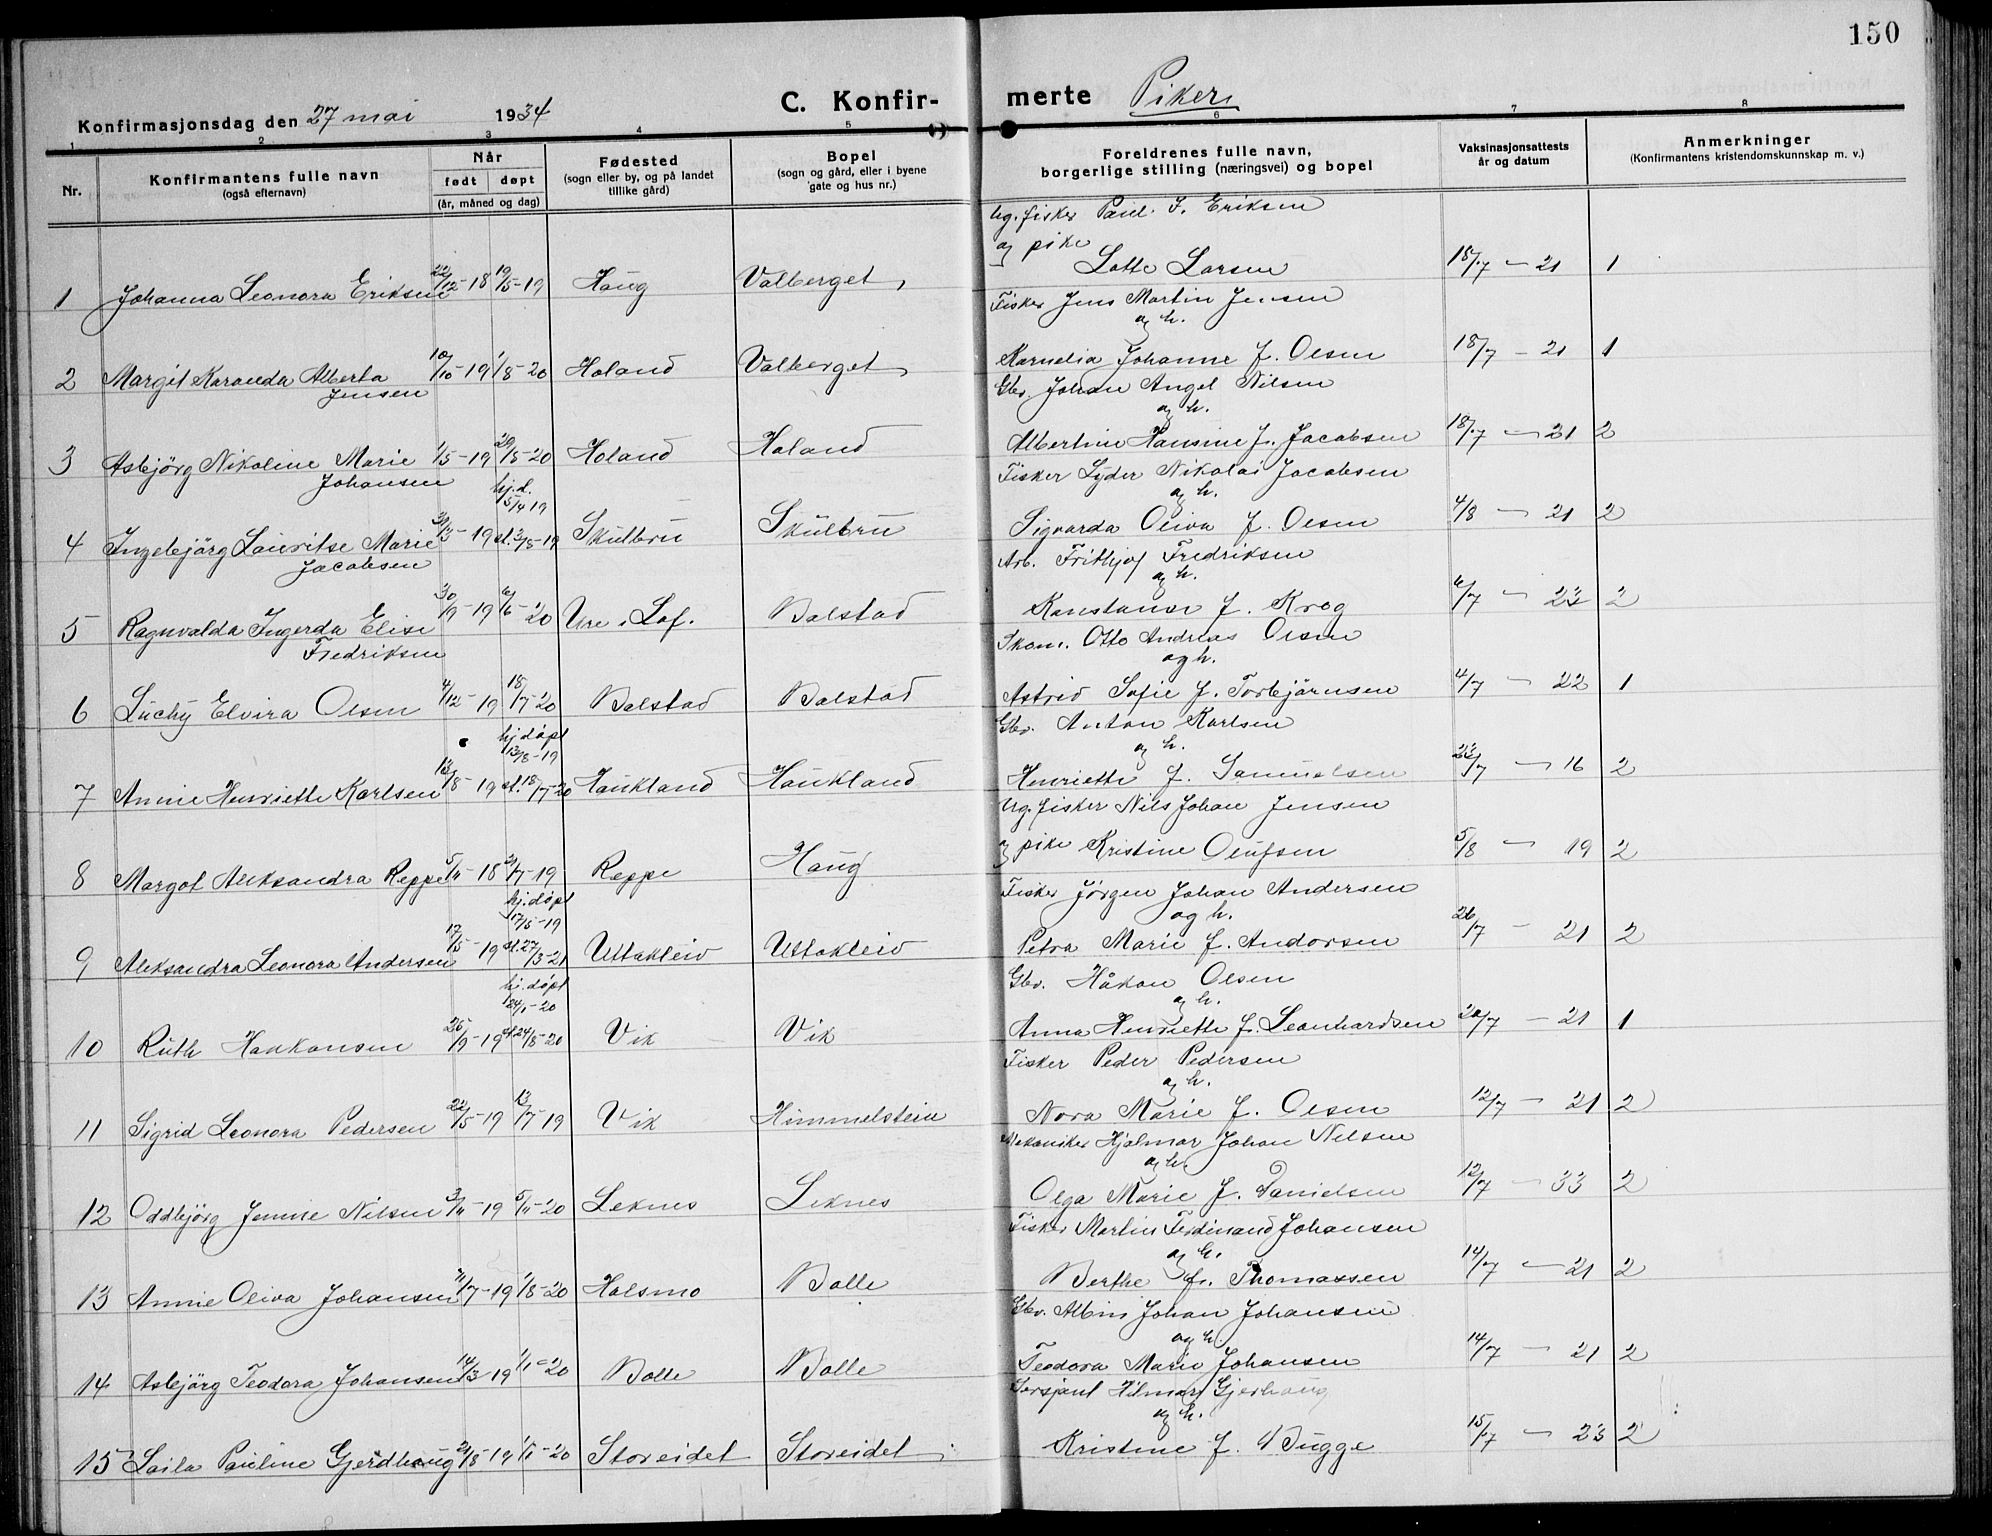 150
C. Konfir- merte Piker
Konfirmasjonsdag den 27 mai 1934
1 2 3 4 5 6 7 8
Nr. Konfirmantens fulle navn (også efternavn) Når født døpt (år, måned og dag) Fødested (sogn eller by, og på landet tillike gård) Bopel (sogn og gård, eller i byene gate og hus nr.) Foreldrenes fulle navn, borgerlige stilling (næringsvei) og bopel Vaksinasjonsattests år og datum Anmerkninger (Konfirmantens kristendomskunnskap m. v.)
Ug. fisker Paul. J. Eriksen
og pike
1 Johanna Leonora Eriksen 22/12-18 19/5-19 Haug Valberget Lotte Larsen 18/7 - 21 1
Fisker Jens Martin Jensen
og h.
2 Margit Karanda Alberta 10/10-19 1/8-20 Holand Valberget Karnelia Johanne f. Olsen 18/7 - 21 1
Jensen
Gbr. Johan Angel Nilsen
og h.
3 Asbjörg Nikoline Marie 1/5-19 29/5-20 Holand Holand Albertine Hansine f. Jacobsen 18/7 - 21 2
Johansen
Fisker Lyder Nikolai Jacobsen
hj.d. 5/4 19
og h.
4 Ingebjörg Lauritse Marie 30/3-19 st. 3/8-19 Skulbru Skulbru Sigvarda Oliva f. Olsen 4/8 - 21 2
Jacobsen
Arb. Frithjof Fredriksen
og h.
5 Ragnvalda Ingerda Elise 30/9-19 6/6-20 Ure i Lof. Balstad Konstanse f. Krog 6/7 - 23 2
Fredriksen
Skom. Otto Andreas Olsen
og h.
6 Luchy Elvira Olsen 4/12-19 18/7-20 Balstad Balstad Astrid Sofie f. Torbjörnsen 4/7 - 22 1
Gbr. Anton Karlsen
hj. döpt 13/8-19
og h.
7 Annie Henriette Karlsen 13/8-19 st. 18/7-20 Haukland Haukland Henriette f. Samuelsen 23/7 - 16 2
Ug. fisker Nils Johan Jensen
8 Margot Aleksandra Reppe 5/11-18 21/7-19 Reppe Haug og pike Kristine Olufsen 5/8 - 19 2
Fisker Jörgen Johan Andersen
hj. döpt 17/5-19
og h.
9 Aleksandra Leonora Andersen 17/5-19 st. 27/3-21 Uttakleiv Uttakleiv Petra Marie f. Andorsen 26/7 - 21 2
Gbr. Håkon Olsen
hj. döpt 24/1-20
og h.
10 Ruth Haakonsen 25/9-19 st. 24/8-20 Vik Vik Anna Henriette f. Leonhardsen 20/7 - 21 1
Fisker Peder Pedersen
og h.
11 Sigrid Leonora Pedersen 22/5-19 13/7-19 Vik Himmelstein Nora Marie f. Olsen 12/7 - 21 2
Mekaniker Hjalmar Johan Nilsen
og h.
12 Oddbjörg Jennie Nilsen 3/11-19 5/11-20 Leknes Leknes Olga Marie f. Danielsen 12/7 - 33 2
Fisker Martin Ferdinand Johansen
og h.
13 Annie Oliva Johansen 11/7-19 1/8-20 Holsmo Bolle Berthe f. Thomassen 14/7 - 21 2
Gbr. Albin Johan Johansen
og h.
14 Asbjörg Teodora Johansen 14/3-19 1/1-20 Bolle Bolle Teodora Marie Johansen 14/7 - 21 2
Sersjant Hilmar Gjerhaug
og h.
15 Laila Pauline Gjerdhaug 21/8-19 1/1-20 Storeidet Storeidet Kristine f. Bugge 15/7 - 23 2